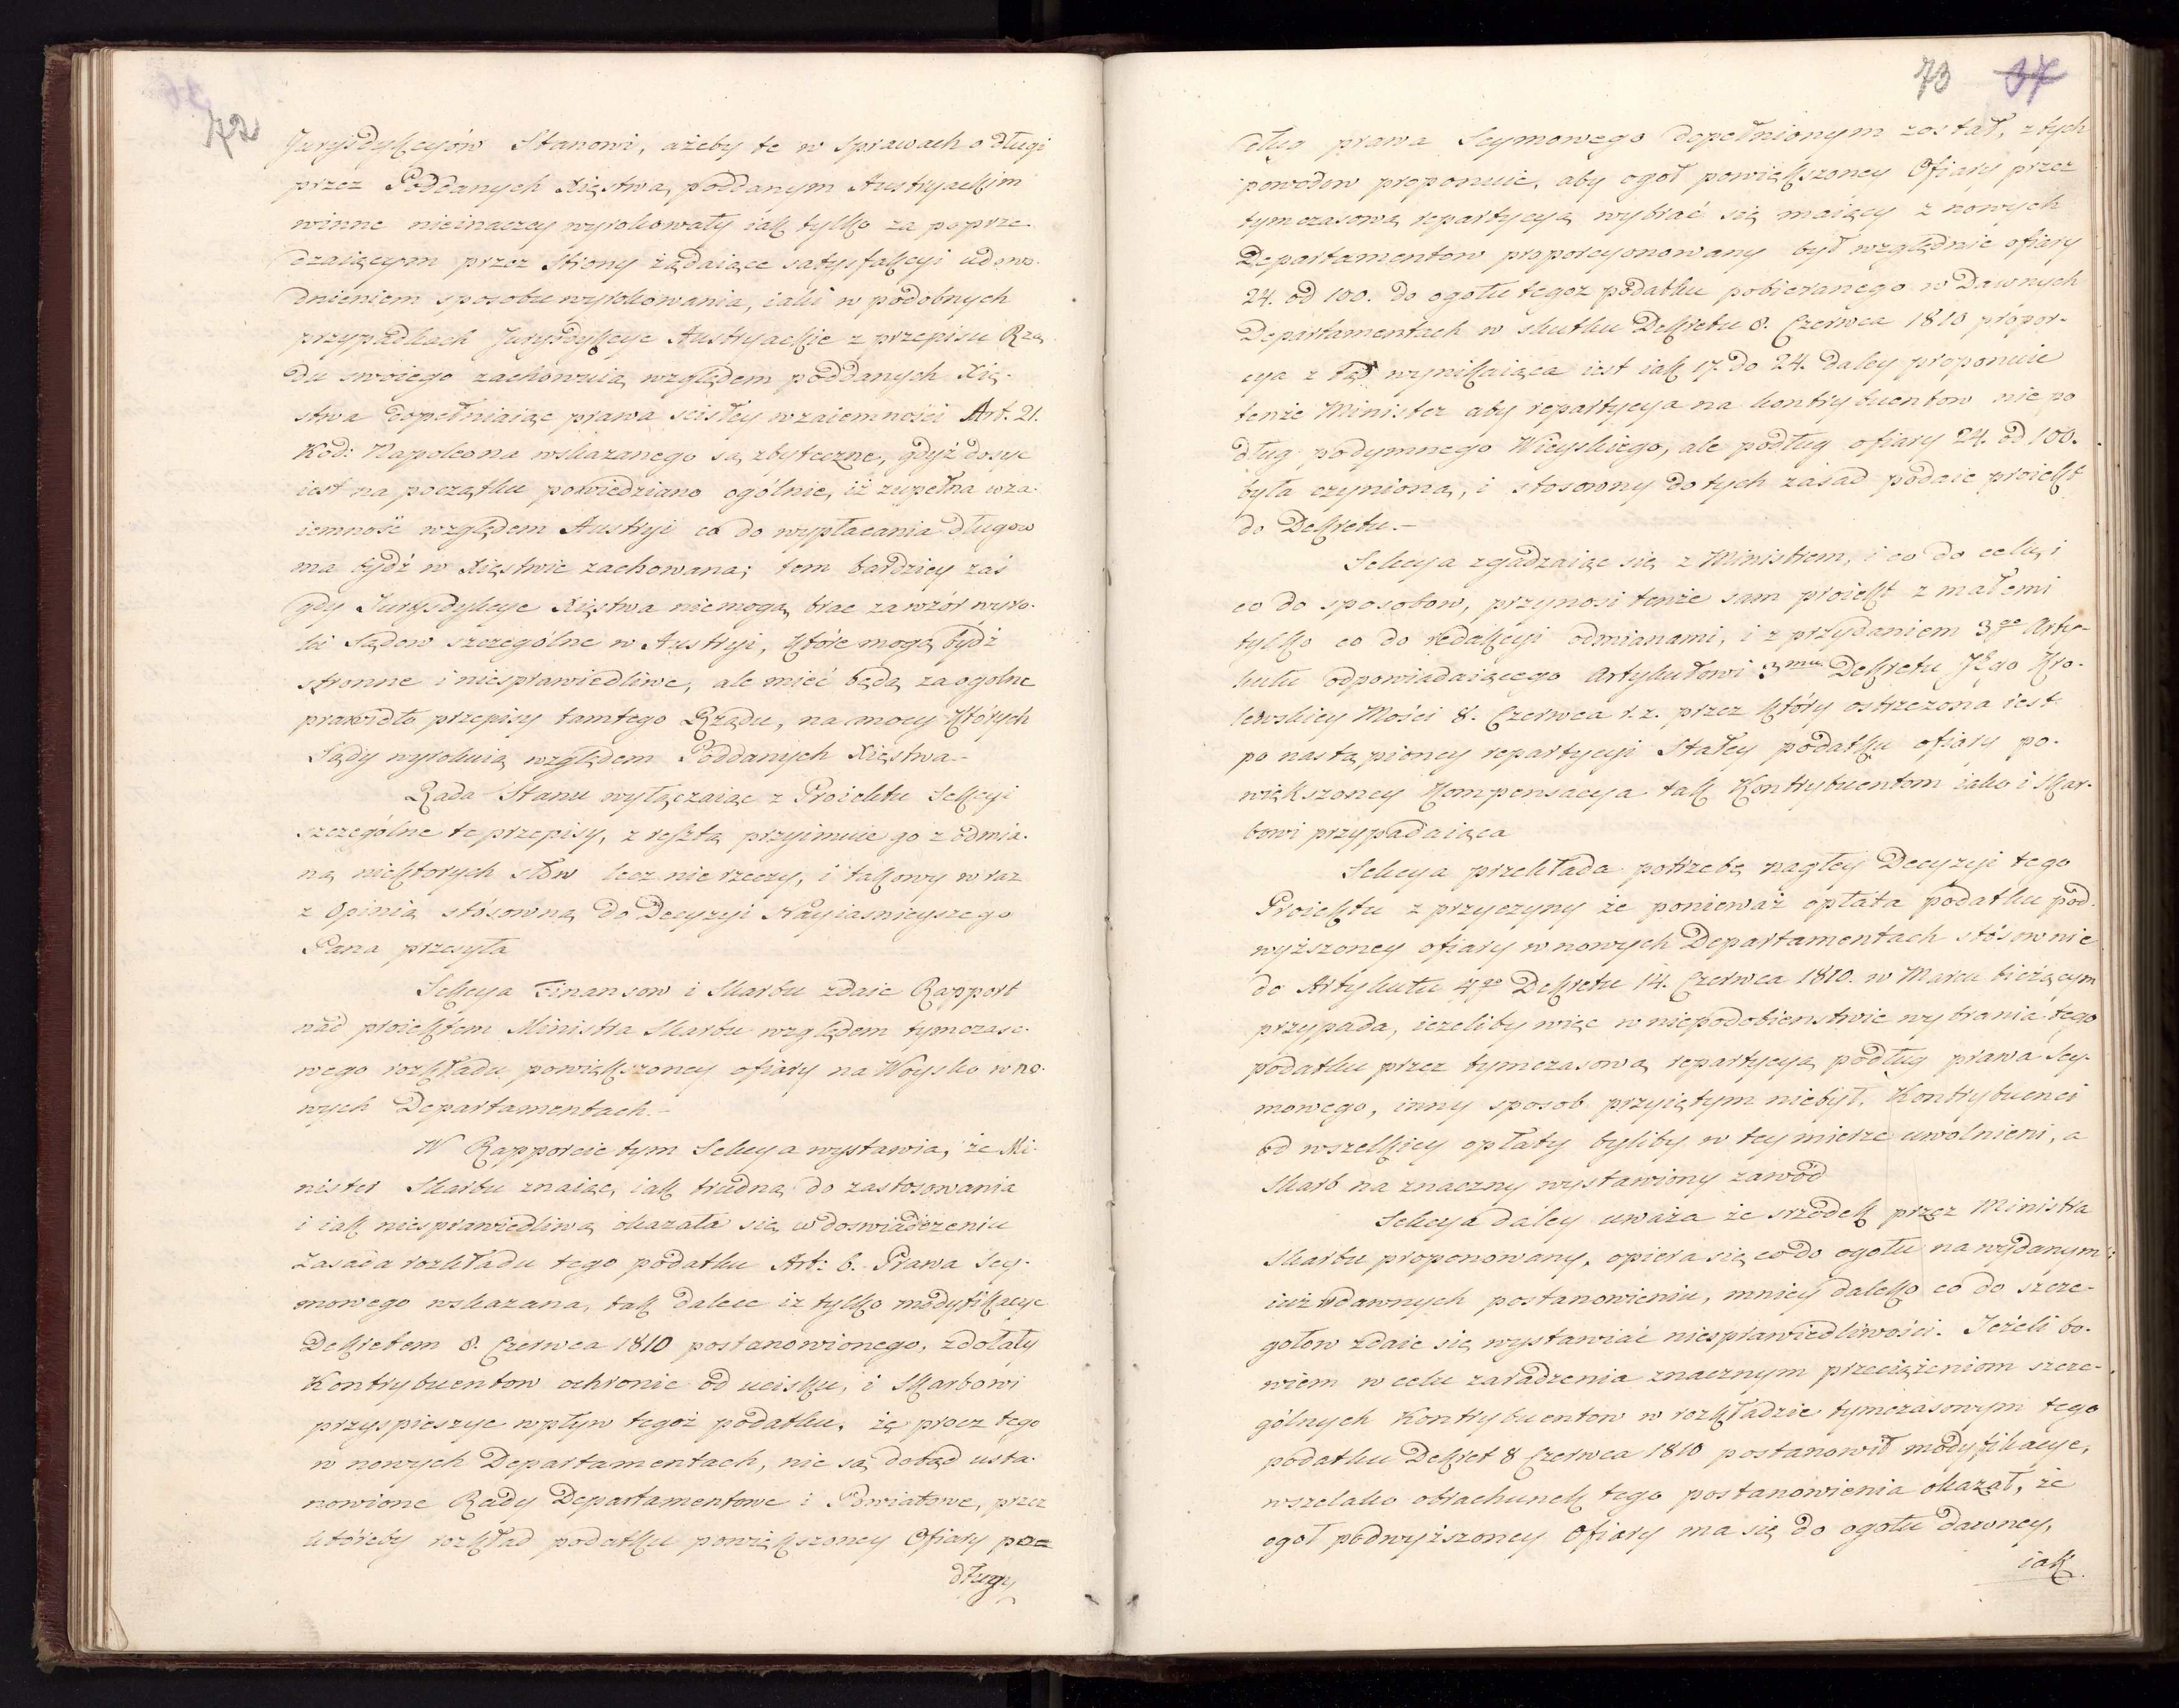 72
Jurysdykcyów Stanowi, ażeby te w sprawach o długi
przez Poddanych Xięstwa, poddanym Austryackim
winne nieinaczey wyrokowały iak tylko za poprze-
dzaiącym przez Strony żądaiące satysfakcyi udowo-
dnieniem sposobu wyrokowania, iaki w podobnych
przypadkach Jurysdykcye Austryackie z przepisu Rzą-
du swoiego zachowuią względem poddanych Xię-
stwa dopełniaiąc prawa scisłey wzaiemności Art. 21.
Kod: Napoleona wskazanego są zbyteczne, gdyż dosyc
iest na początku powiedziano ogólnie, iż zupełna wza-
iemność względem Austryi co do wypłacania długow
ma bydź w Xięstwie zachowana; tem bardziey zaś
gdy Jurysdykcye Xięstwa niemogą brac za wzór wyro-
ki Sądow szczególne w Austryi, które mogą bydź
stronne i niesprawiedliwe, ale mieć będą za ogolne
prawidło przepisy tamtego Rządu, na mocy których
Sądy wyrokuią względem Poddanych Xięstwa.-
Rada Stanu wyłączaiąc z Proiektu Sekcyi
szczególne te przepisy, z resztą przyimuie go z odmia-
ną niektorych słów lecz nie rzeczy, i takowy wraz
z Opinią stósowną do Decyzyi Nayiasnieyszego
Pana przesyła
Sekcya Finansow i Skarbu zdaie Rapport
nad proiektem Ministra Skarbu względem tymczaso-
wego rozkładu powiększoney ofiary na Woysko w no-
wych Departamentach.-
W Rapporcie tym Sekcya wystawia, że Mi-
nister Skarbu znaiąc, iak trudną do zastosowania
i iak niesprawiedliwą okazała się w doswiadczeniu
zasada rozkładu tego podatku Art: 6. Prawa Sey-
mowego wskazana, tak dalece iż tylko modyfikacye
Dekretem 8. Czerwca 1810 postanowionego, zdołały
Kontrybuentow ochronic od ucisku, i Skarbowi
przyspieszyc wpływ tegoż podatku, że procz tego
w nowych Departamentach, nie są dotąd usta-
nowione Rady Departamentowe i Powiatowe, przez
któreby rozkład podatku powiększoney Ofiary po-
dług
73 37
dług prawa Seymowego dopełnionym został, z tych
powodow proponuie, aby ogoł powiększoney Ofiary przez
tymczasową repartycyą wybrać się maiący z nowych
Departamentow proporcyonowany był względnie ofiary
24. od 100. do ogołu tegoz podatku pobieranego w Dawnych
Departamentach w skutku Dekretu 8. Czerwca 1810 propor-
cya z tąd wynikaiąca iest iak 17. do 24. daley proponuie
tenże Minister aby repartycya na kontrybuentow nie po
dług podymnego Wieyskiego, ale podług ofiary 24. od 100.
była czyniona, i stosowny do tych zasad podaie proiekt
do Dekretu.-
Sekcya zgadzaiąc się z Ministrem, i co do celu, i
co do sposobow, przynosi tenże sam proiekt z małemi
tylko co do redakcyi odmianami, i z przydaniem 3go Arty-
kułu odpowiadaiącego Artykułowi 3mu Dekretu JEgo Kro-
lewskiey Mości 8. Czerwca r. z. przez który ostrzeżona iest
po nastąpioney repartycyi Stałey podatku ofiary po-
większoney Kompensacya tak Kontrybuentom iako i Skar-
bowi przypadaiąca
Sekcya przekłada potrzebę nagłey Decyzyi tego
Proiektu z przyczyny że ponieważ opłata podatku pod-
wyższoney ofiary w nowych Departamentach stósownie
do Artykułu 4go Dekretu 14. Czerwca 1810. w Marcu bieżącym
przypada, ieżeliby więc w niepodobienstwie wybrania tego
podatku przez tymczasową repartycyą podług prawa Sey-
mowego, inny sposob przyiętym niebył, Kontrybuenci
od wszelkiey opłaty byliby w tey mierze uwolnieni, a
Skarb na znaczny wystawiony zawód
Sekcya daley uważa że srzodek przez Ministra
Skarbu proponowany, opiera się co do ogołu na wydanym
iuż w dawnych postanowieniu, mniey daleko co do szcze-
gołow zdaie się wystawiać niesprawiedliwości. Jeżeli bo-
wiem w celu zaradzenia znacznym przeciążeniom szcze-
gólnych Kontrybuentow w rozkładzie tymczasowym tego
podatku Dekret 8 Czerwca 1810 postanowił modyfikacye,
wszelako obrachunek tego postanowienia okazał, że
ogoł podwyższoney Ofiary ma się do ogołu dawney,
iak